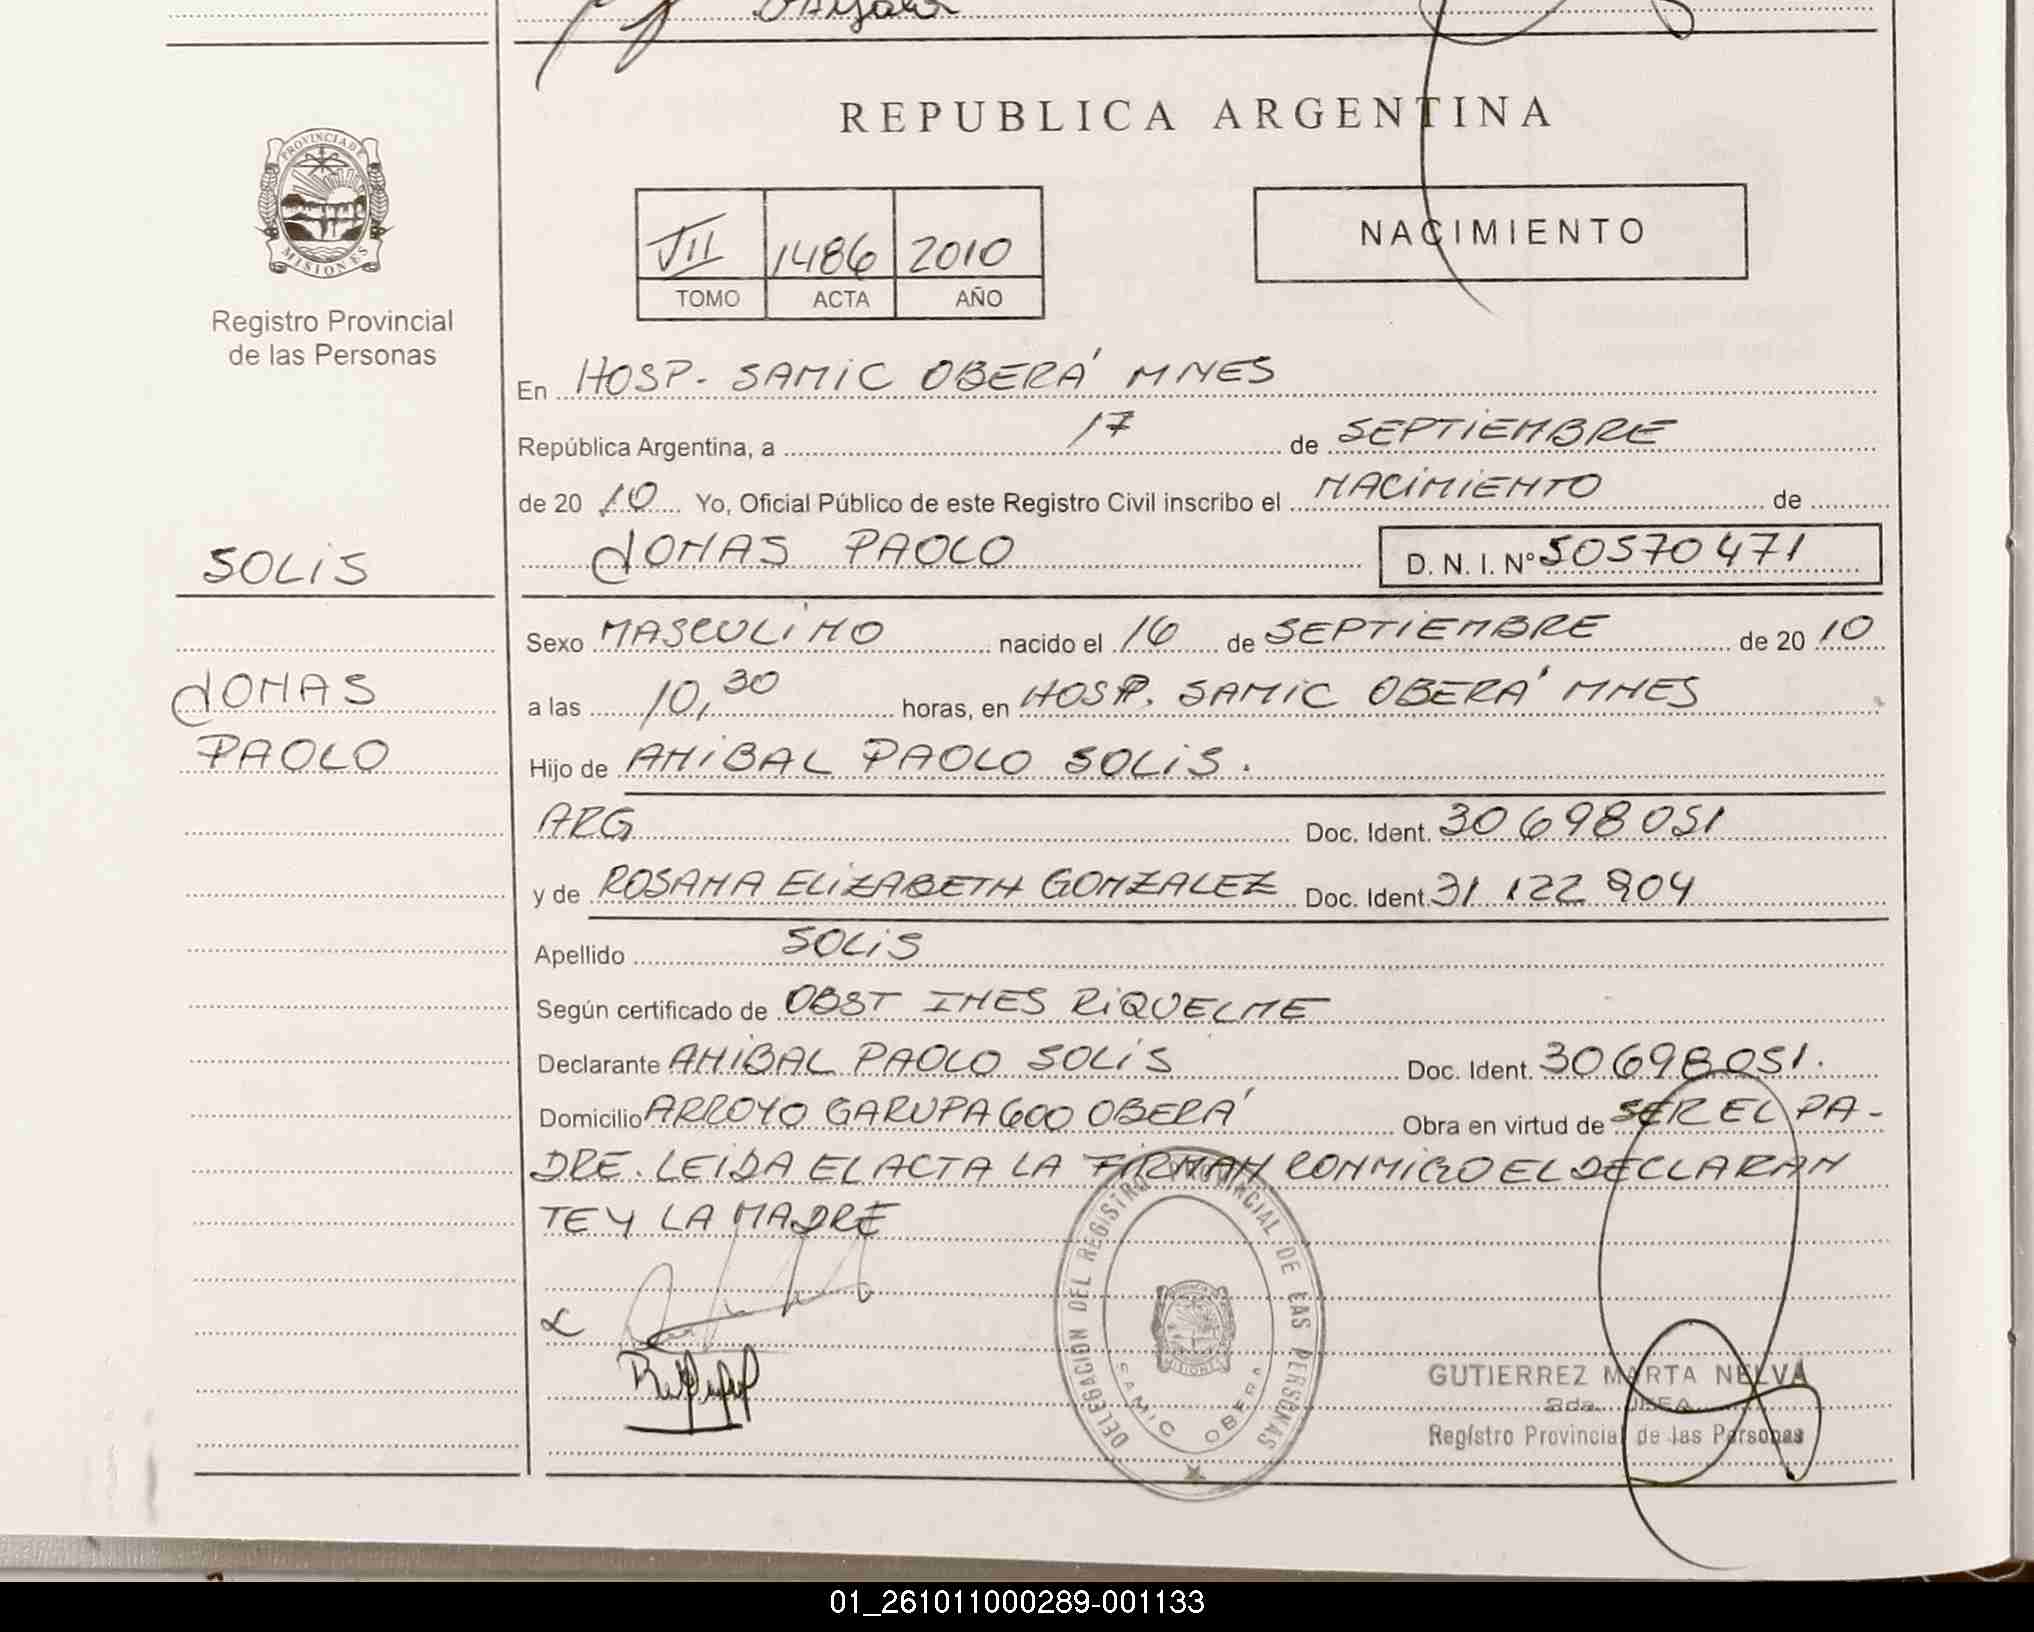 REPUBLICA ARGENTINA
PROVINCIA DE MISIONES
Registro Provincial
de las Personas
VII 1486 2010
TOMO ACTA AÑO
NACIMIENTO
En HOSP. SAMIC OBERÁ MNES
República Argentina, a 17 de SEPTIEMBRE
de 20 10 Yo, Oficial Público de este Registro Civil inscribo el NACIMIENTO de
JONAS PAOLO D. N. I. N° 50570471
SOLIS
JONAS
PAOLO
Sexo MASCULINO nacido el 16 de SEPTIEMBRE de 20 10
a las 10,30 horas, en HOSP. SAMIC OBERÁ MNES
Hijo de ANIBAL PAOLO SOLIS.
ARG Doc. Ident. 30698051
y de ROSANA ELIZABETH GONZALEZ Doc. Ident. 31 122 904
Apellido SOLIS
Según certificado de OBST INES RIQUELME
Declarante ANIBAL PAOLO SOLIS Doc. Ident. 30698051.
Domicilio ARROYO GARUPA 600 OBERÁ Obra en virtud de SER EL PA-
DRE. LEIDA EL ACTA LA FIRMAN CONMIGO EL DECLARAN
TE Y LA MADRE
DELEGACION DEL REGISTRO PROVINCIAL DE LAS PERSONAS
MISIONES
SAMIC OBERA
GUTIERREZ MARTA NELVA
Registro Provincial de las Personas
01_261011000289-001133